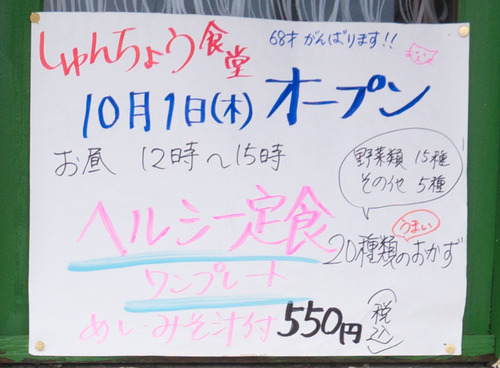 しゅんちょう食堂
68才 がんばります!!
10月1日(木) オープン
お昼 12時〜15時
野菜類 15種
その他 5種
ヘルシー定食
うまい
20種類のおかず
ワンプレート
めし・みそ汁付 550円(税込)